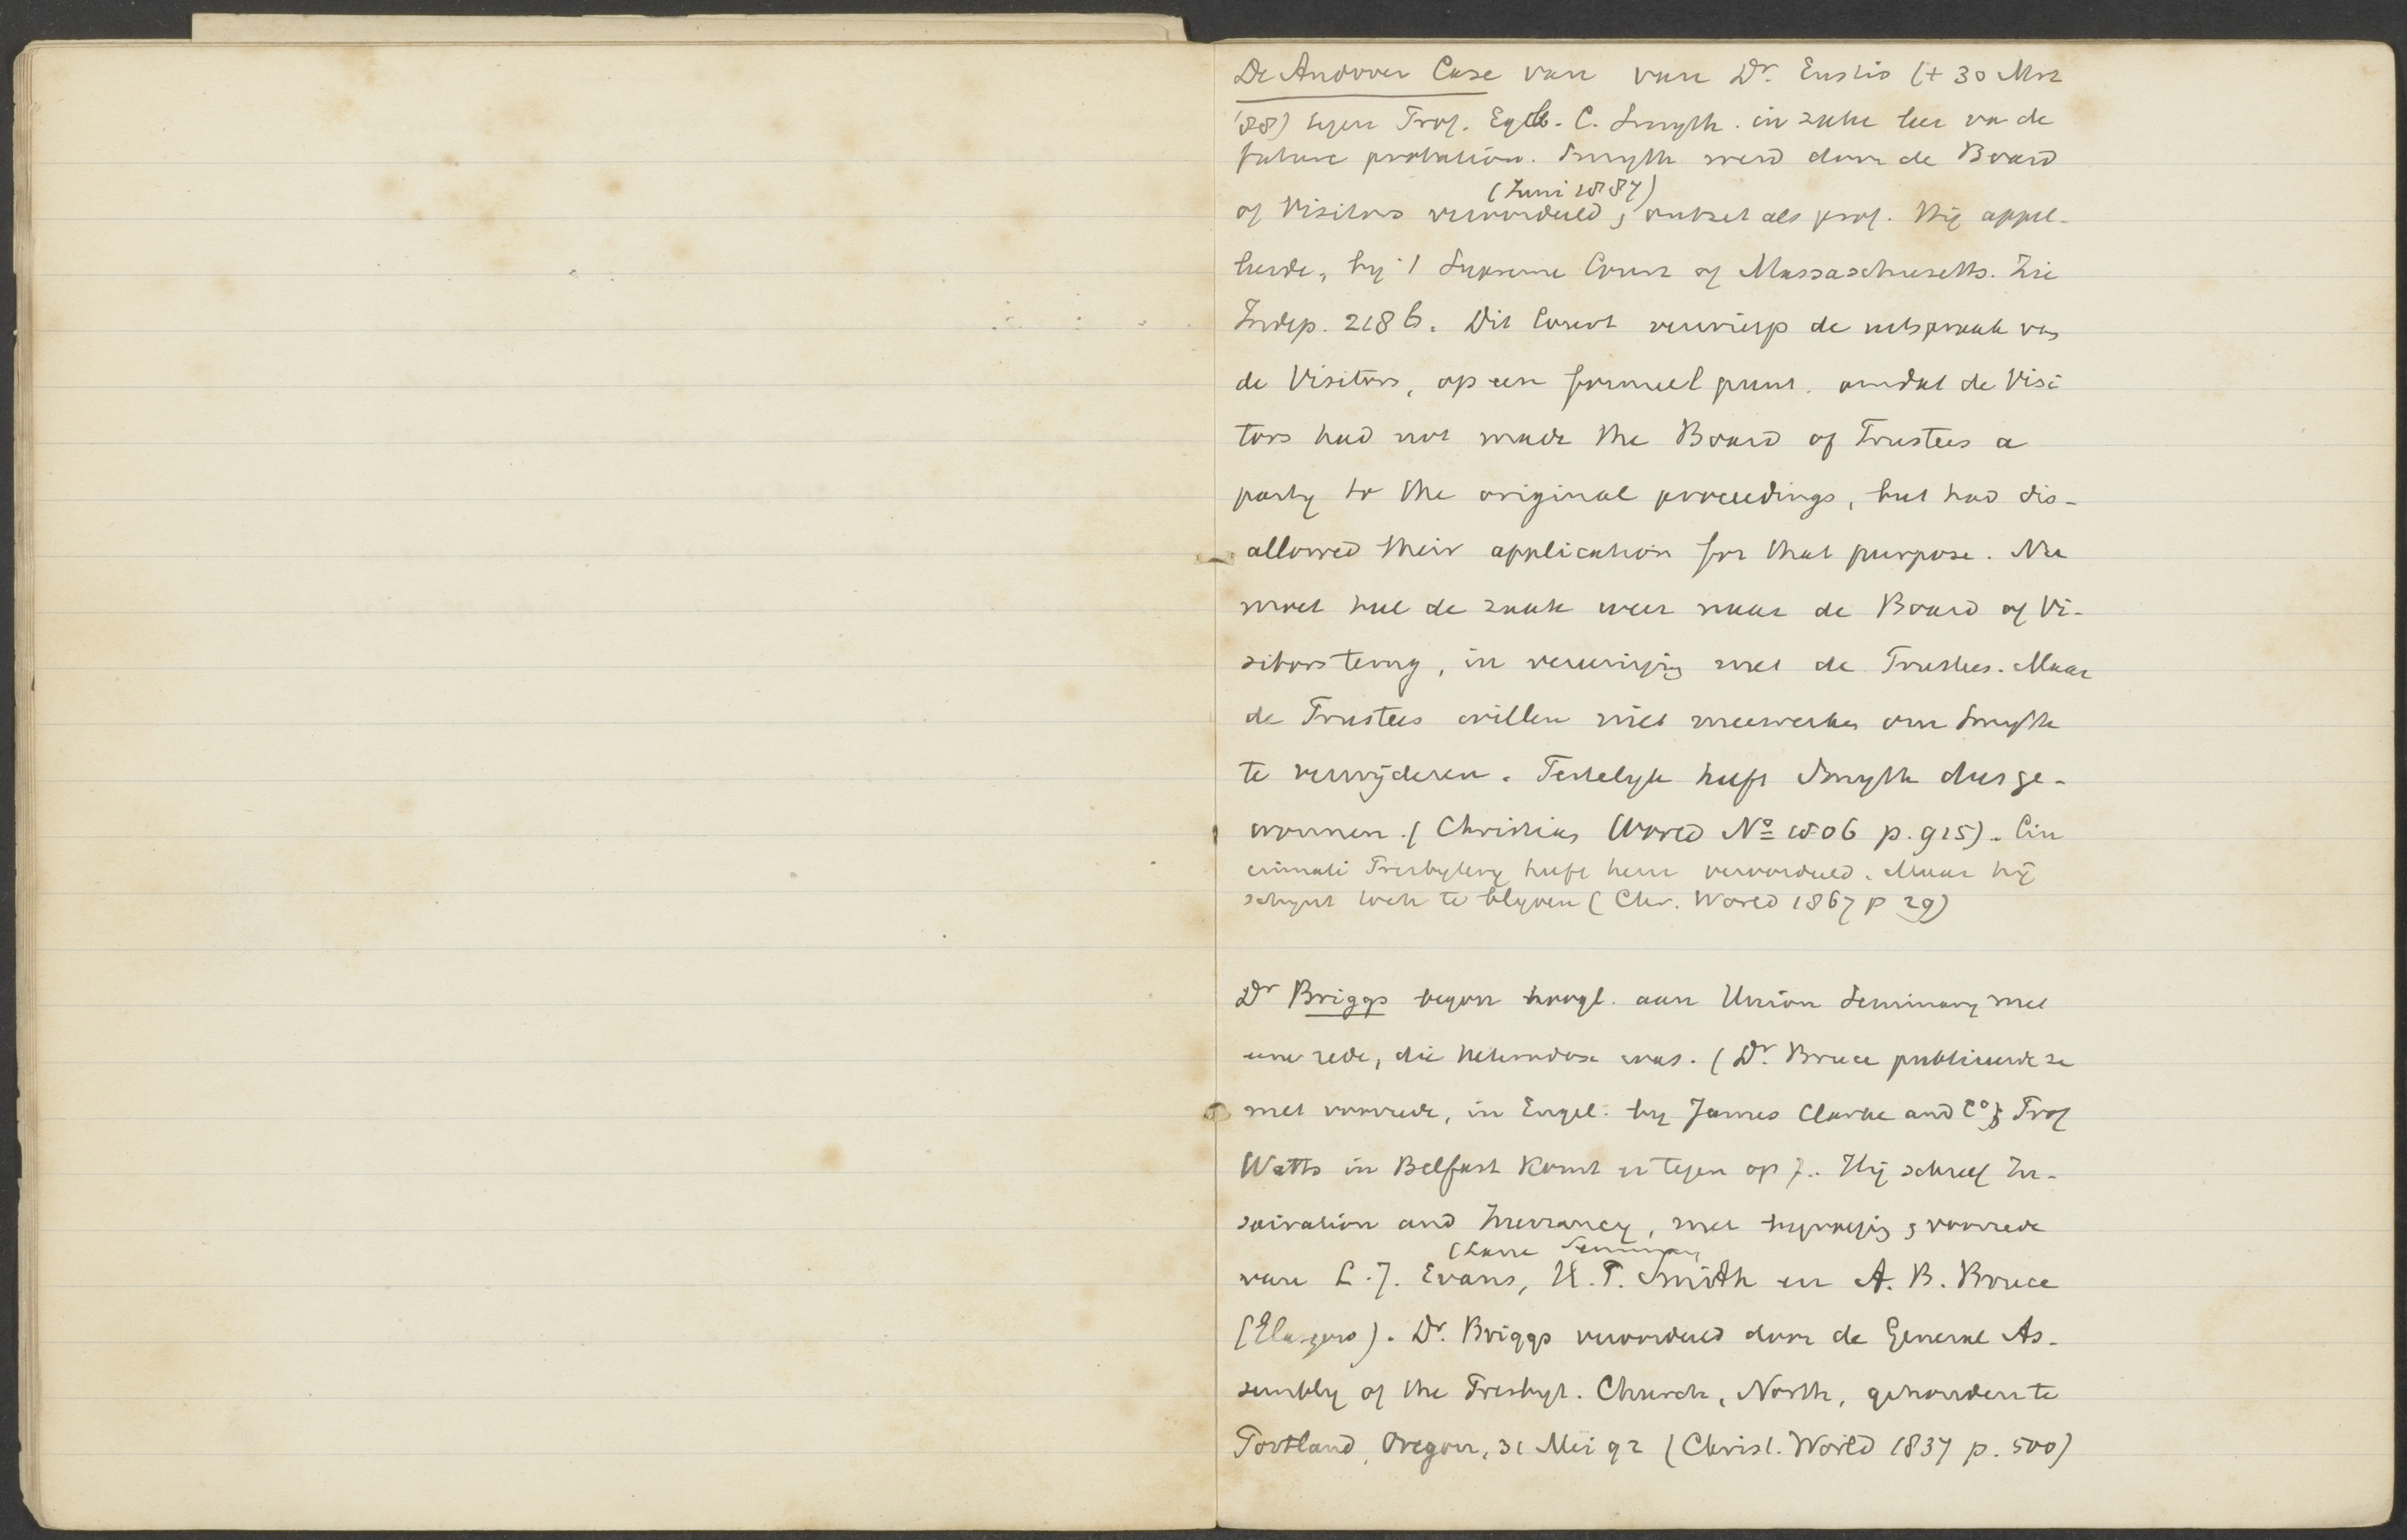 De Andover Case van van Dr. Eustis († 30 Mrt
'88) tegen Prof. Egb. C. Smyth. in zake leer v. de
future probation. Smyth werd door de Board
(Juni 1887)
of Visitors veroordeeld, ontzet als prof. Hij appel-
leerde, by 't Supreme Court of Massaschusetts. Zie
Indep. 2186. Dit Court verwierp de uitspraak van
de Visitors, op een formeel punt. omdat de Visi
tors had not made the Board of Trustees a
party to the original proceedings, but had dis-
allowed their application for that purpose. Nu
moet heel de zaak weer naar de Board of Vi-
sitors terug, in vereeniging met de Trustees. Maar
de Trustees willen niet meewerken om Smyth
te verwijderen. Feitelyk heeft Smyth dus ge-
wonnen. (Christian World No 1806 p. 915). Cin
cinnati Presbytery heeft hem veroordeeld. Maar hij
schynt toch te blyven (Chr. World 1867 p 29)
Dr Briggs begon hoogl. aan Union Seminary met
eene rede, die heterodox was. (Dr. Bruce publiceerde ze
met voorrede, in Engel. by James Clarke and Co; Prof
Watts in Belfast komt er tegen op). Hij schreef In-
spiration and Inerrancy, met bydragen voorrede
(Lane Seminary
van L. J. Evans, H. P. Smith en A. B. Bruce
(Glasgow). Dr. Briggs veroordeeld door de General As-
sembly of the Presbyt. Church, North, gehouden te
Portland, Oregon, 31 Mei 92 (Christ. World 1837 p. 500)